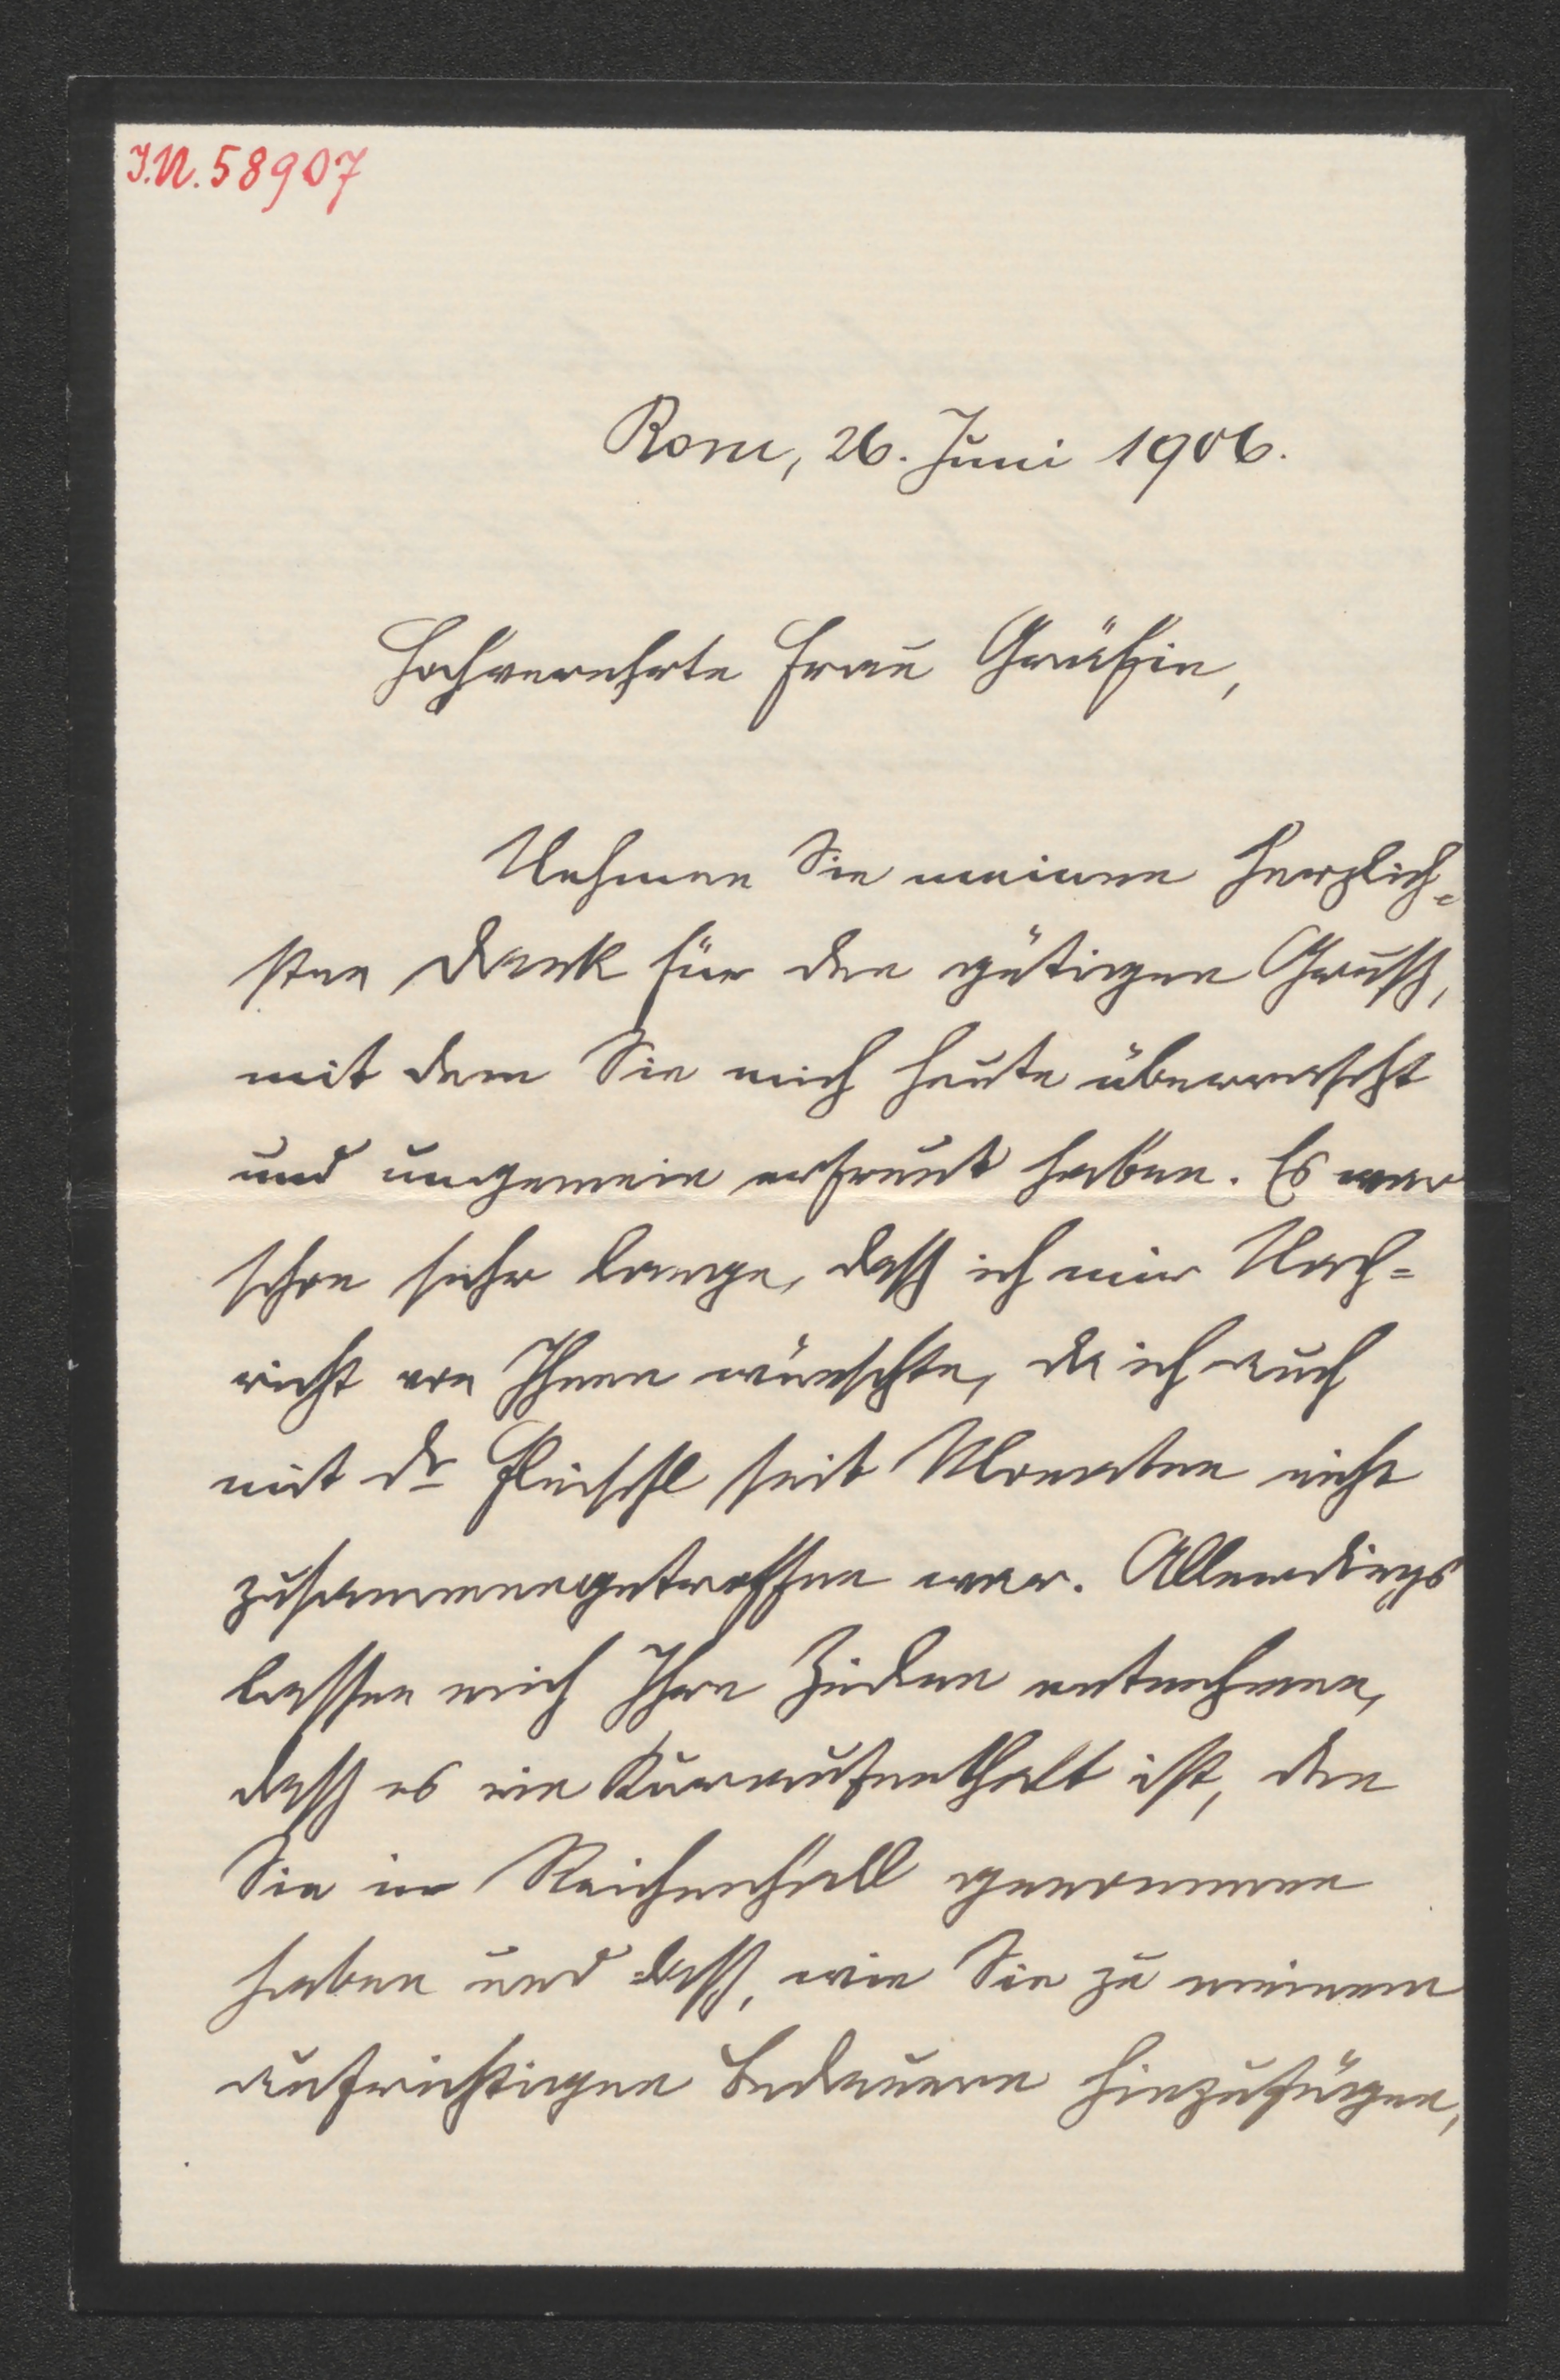 J.N. 58907
Rom, 26. Juni 1906.
Hochverehrte Frau Gräfin,
Nehmen Sie meinen herzlich-
sten Dank für den gütigen Gruß,
mit dem Sie mich heute überrascht
und ungemein erfreut haben. Es war
schon sehr lange, daß ich mir Nach-
richt von Ihnen wünschte, da ich auch
mit Dr Fleischl seit Monaten nicht
zusammengetroffen war. Allerdings
lassen mich Ihre Zeilen entnehmen,
daß es ein Kuraufenthalt ist, den
Sie in Reichenhall genommen
haben und daß, wie Sie zu meinem
aufrichtigen Bedauern hinzufügen,